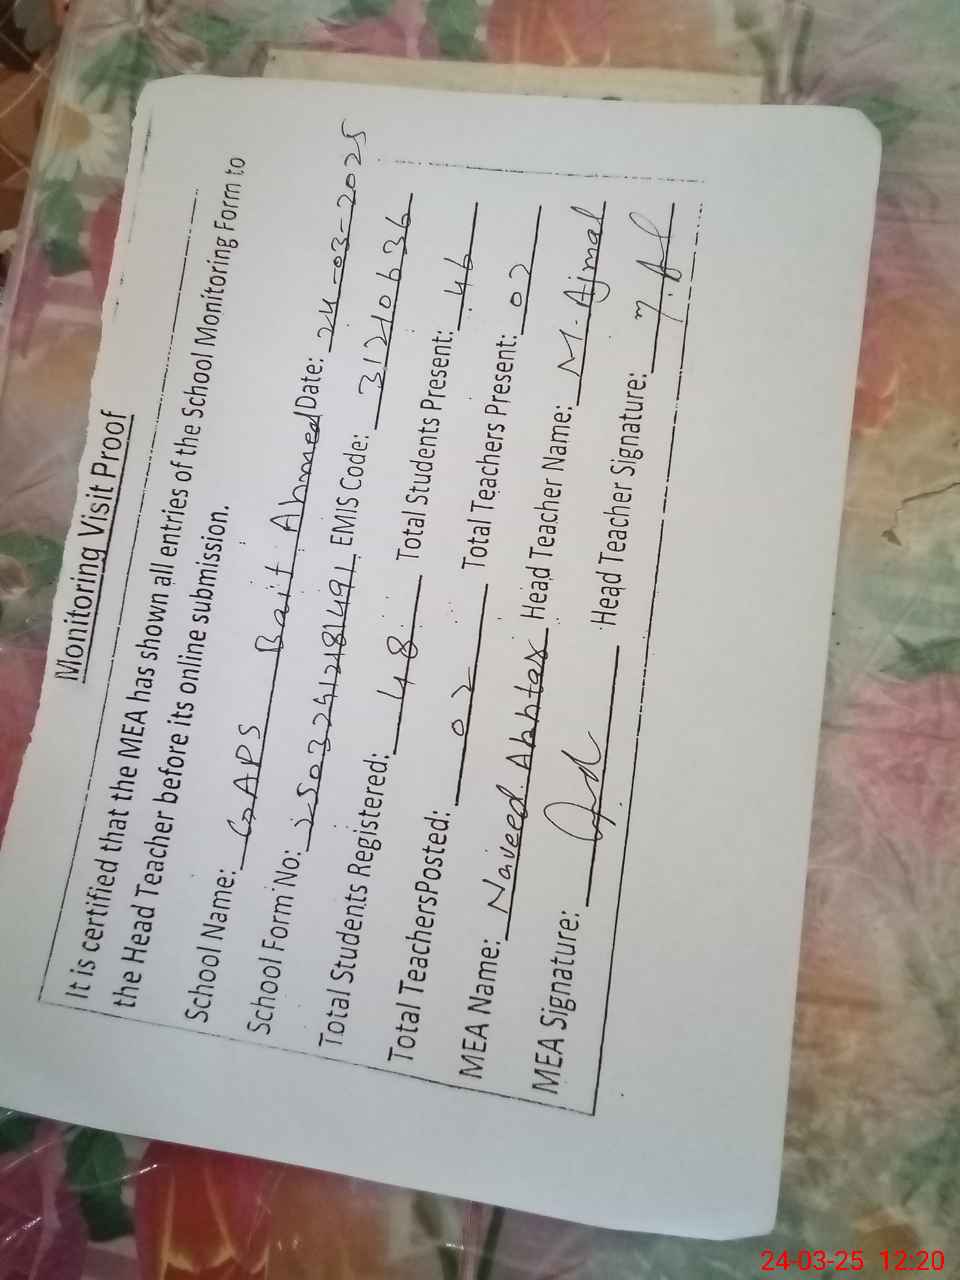 Monitoring Visit Proof
It is certified that the MEA has shown all entries of the School Monitoring Form to
the Head Teacher before its online submission.
School Name: GAPS Bait Ahmed Date: 24-03-2025
School Form No: EMIS Code: 31210636
Total Students Registered: 48 Total Students Present: 46
Total TeachersPosted: 02 Total Teachers Present: 02
MEA Name: Naveed Akhtar Head Teacher Name: M. Ajmal
MEA Signature: Head Teacher Signature:
24-03-25 12:20